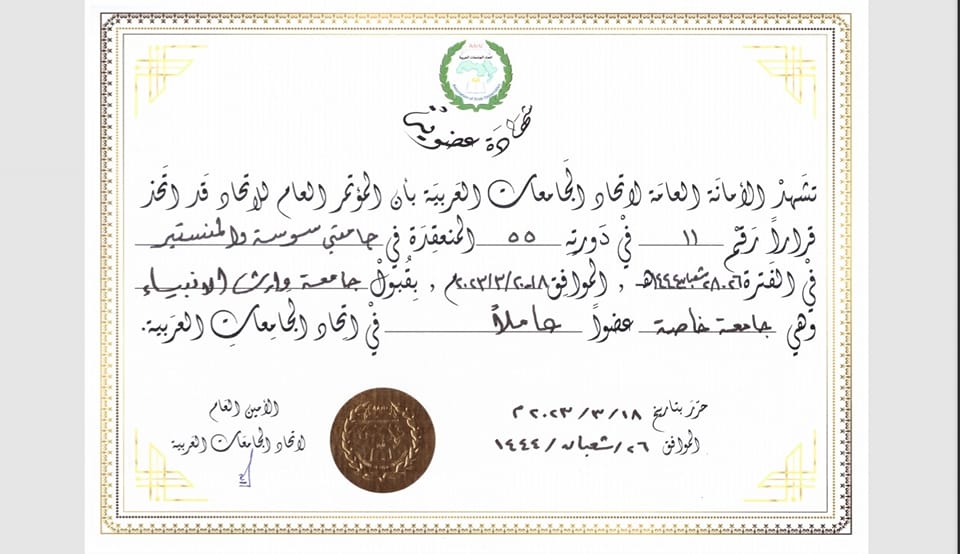 AARU
اتحاد الجامعات العربية
Association of Arab Universities
شهادة عضوية
تشهد الأمانة العامة لاتحاد الجامعات العربية بأن المؤتمر العام للاتحاد قد اتخذ
قراراً رقم ١١ في دورته ٥٥ المنعقدة في جامعتي سوسة والمنستير
في الفترة ٢٦-٢٨ شعبان ١٤٤٤هـ ، الموافق ١٨-٢٠/٣/٢٠٢٣م ، بقبول جامعة وارث الانبياء
وهي جامعة خاصة عضواً عاملاً في اتحاد الجامعات العربية.
حرر بتاريخ ١٨ / ٣ / ٢٠٢٣ م
الموافق ٢٦ / شعبان / ١٤٤٤
الأمين العام
لاتحاد الجامعات العربية